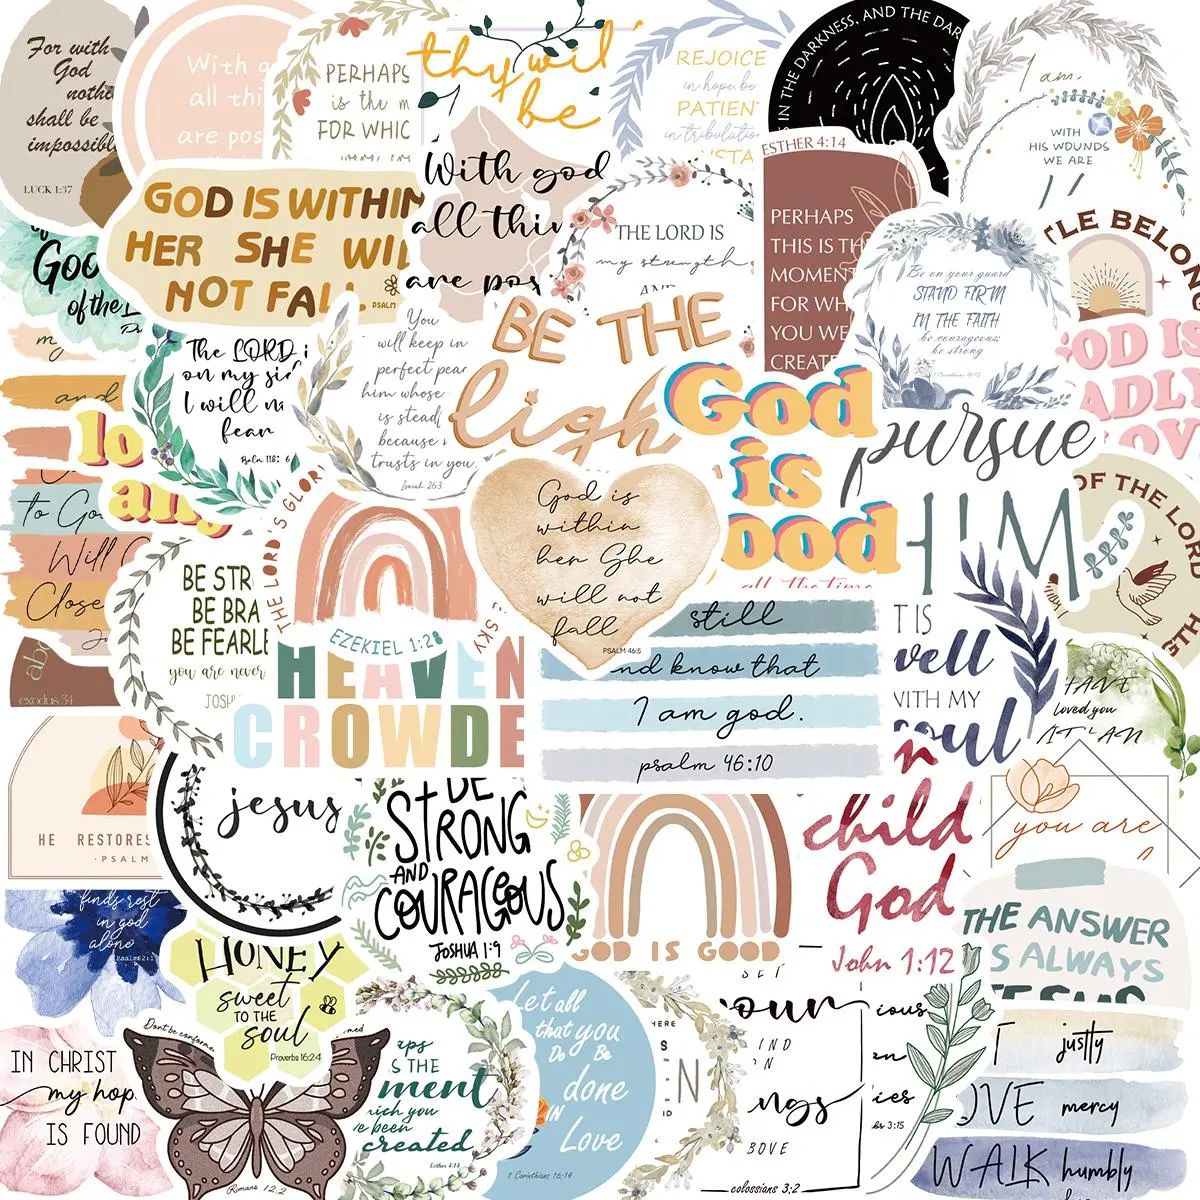 For with
God
nothi
shall be
impossibl
LUCK 1:37
With a
all thi
are pos
PERHAPS
is the m
FOR WHIC
thy wil
be
REJOICE
in hope, be
PATIEN
in tribulatio
NSTA
IN THE DARKNESS, AND THE DAR
I am
WITH
HIS WOUNDS
WE ARE
GOD IS WITHIN
HER SHE WIL
NOT FALL
PSALM
With god
all thin
are pos
THE LORD IS
my strength
AND
ESTHER 4:14
PERHAPS
THIS IS TH
MOMENT
FOR WH
YOU WE
CREATE
Be on your guard
STAND FIRM
IN THE FAITH
be courageous;
be strong
1 Corinthians 16:13
TLE BELONG
GOD IS
ADLY
OV
Goo
of the L
my
and
to Go
Will
Close
The LORD i
on my sid
I will n
fear
Psalm 118: 6
You
will keep in
perfect pea
him whose
is stead
because
trusts in you
Isaiah 26:3
BE THE
ligh
God
is
ood
all the time
pursue
HIM
lo
any
OF THE LORD
THIS
THE LORD'S GLORY
SKY
EZEKIEL 1:28
God is
within
her She
will not
fall
PSALM 46:5
BE STR
BE BRA
BE FEARLE
you are never
JOSHU
HEAVEN
CROWDE
still
and know that
I am god.
psalm 46:10
T IS
well
WITH MY
soul
HAVE
loved you
abo
exodus 34
HE RESTORES
·PSALM
jesus
BE
STRONG
AND
COURAGEOUS
JOSHUA 1:9
GOD IS GOOD
child
God
John 1:12
you are
THE ANSWER
S ALWAYS
JESUS
finds rest
in god
alone
Psalm62:1
HONEY
sweet
TO THE
soul
Proverbs 16:24
IN CHRIST
my hop
IS FOUND
Don't be conforme
med
Romans 12:2
aps
S THE
ment
hich you
e been
created
Esther 4:14
Let all
that you
Do Be
done
IN
Love
1 Corinthians 16:14
HERE
EN
SET
your
IND
N
ings
BOVE
colossians 3:2
ious
en
ies
bs 3:15
T justly
OVE mercy
WALK humbly